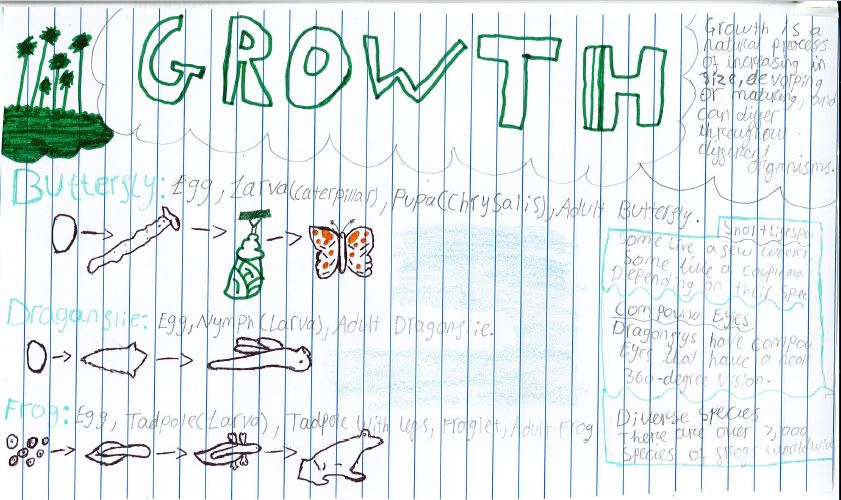 GROWTH
Growth is a
natural process
of increasing in
size, devolping
or maturing, and
can differ
throughout
different
organisms.
Butterfly: Egg, Larva(caterpillar), Pupa(Chrysalis), Adult Butterfly.
Draganflie: Egg, Nymph(Larva), Adult Dragonflie.
Frog: Egg, Tadpole(Larva), Tadpole with legs, Froglet, Adult Frog
Short Lifespan
Some live a few weeks
Some live a couple mo
Depending on their Spec
Compound Eyes
Dragonflys have Compou
Eyes that have a near
360-degree vision.
Diverse Species
There are over 7,000
Species of frogs worldwide